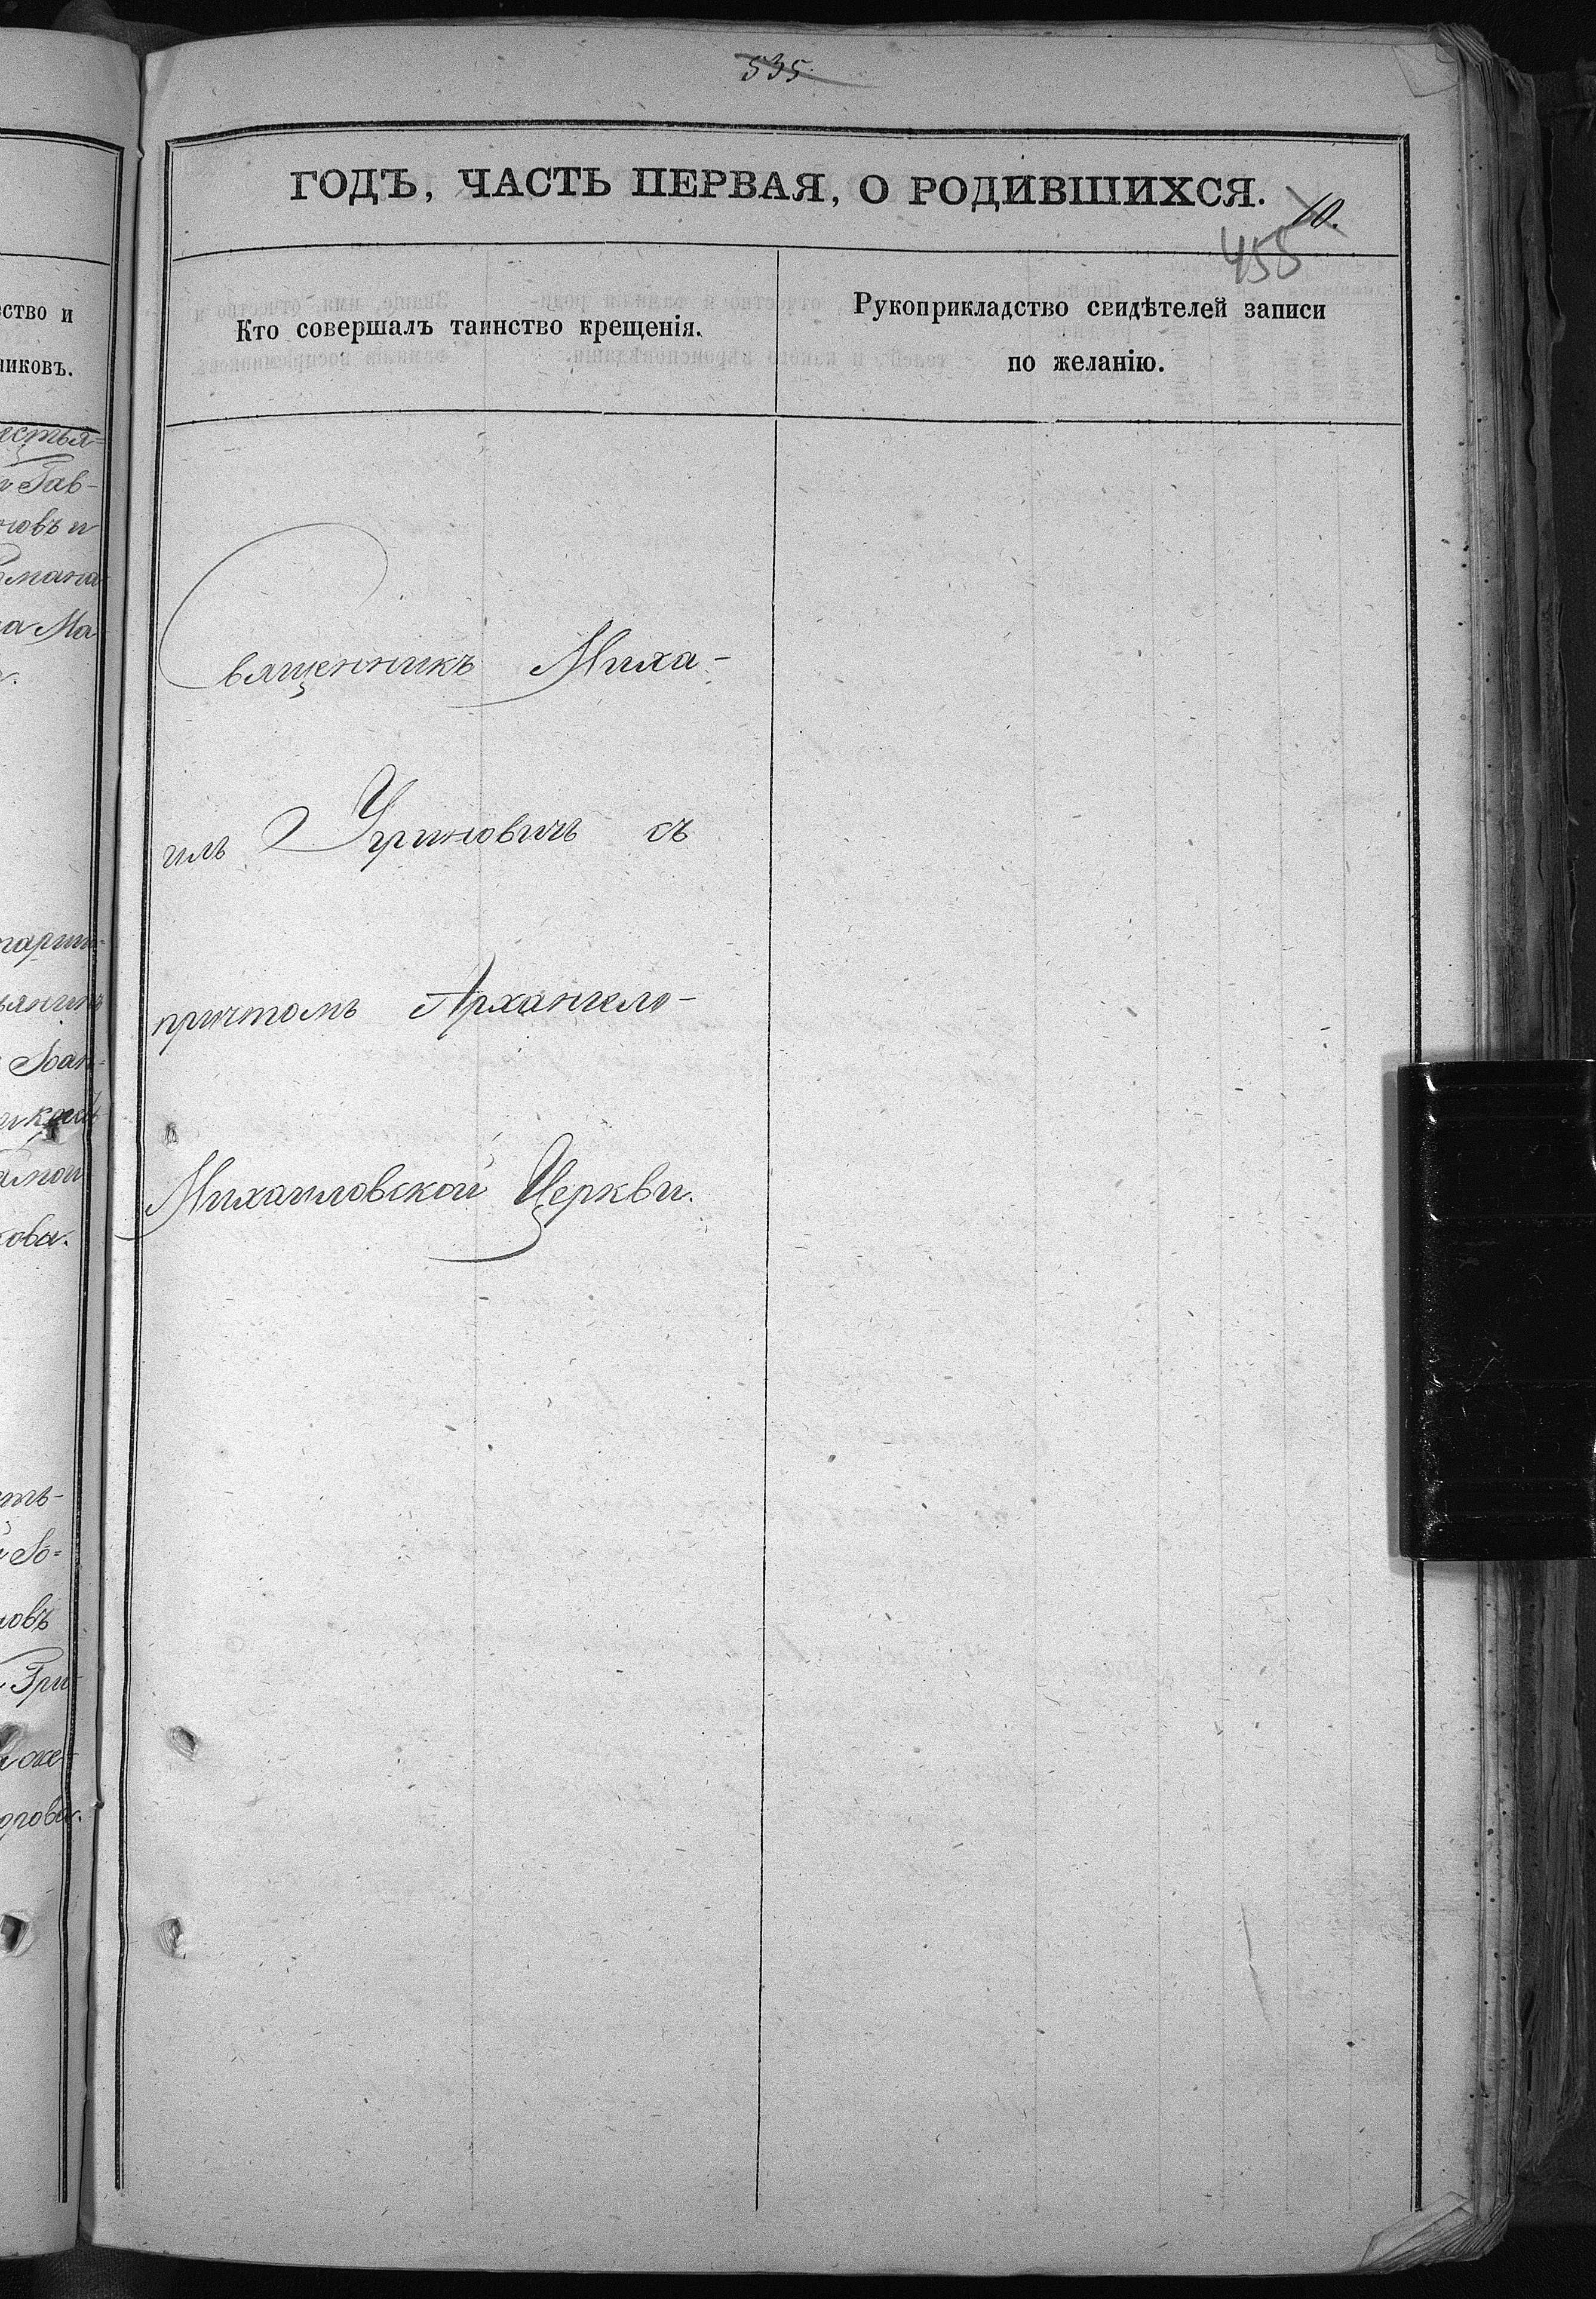 535.
ГОДЪ, ЧАСТЬ ПЕРВАЯ, О РОДИВШИХСЯ.
10.
455
Кто совершалъ таинство крещенія.
Рукоприкладство свидѣтелей записи
по желанію.
Священникъ Миха-
илъ Угриновичъ съ
причтомъ Архангело-
Михаиловской Церкви.